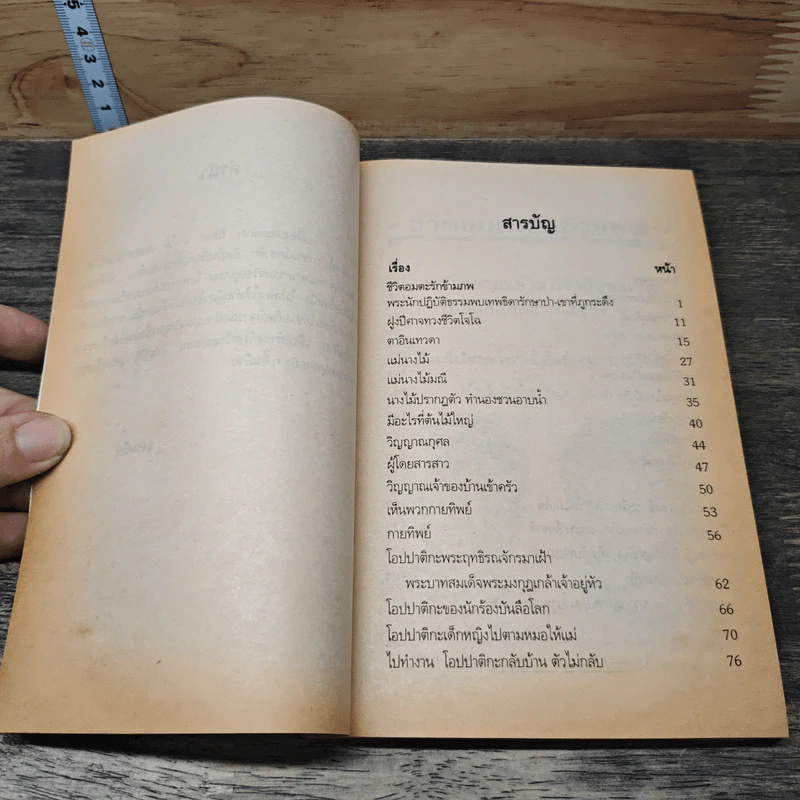 5
4
3
2
1
สารบัญ
เรื่อง หน้า
ชีวิตอมตะรักข้ามภพ
พระนักปฏิบัติธรรมพบเทพธิดารักษาป่า-เขาที่ภูกระดึง 1
ฝูงปีศาจทวงชีวิตโจโฉ 11
ตาอินเทวดา 15
แม่นางไม้ 27
แม่นางไม้มณี 31
นางไม้ปรากฏตัว ทำนองชวนอาบน้ำ 35
มีอะไรที่ต้นไม้ใหญ่ 40
วิญญาณกุศล 44
ผู้โดยสารสาว 47
วิญญาณเจ้าของบ้านเข้าครัว 50
เห็นพวกกายทิพย์ 53
กายทิพย์ 56
โอปปาติกะพระฤทธิรณจักรมาเฝ้า
พระบาทสมเด็จพระมงกุฎเกล้าเจ้าอยู่หัว 62
โอปปาติกะของนักร้องบันลือโลก 66
โอปปาติกะเด็กหญิงไปตามหมอให้แม่ 70
ไปทำงาน โอปปาติกะกลับบ้าน ตัวไม่กลับ 76